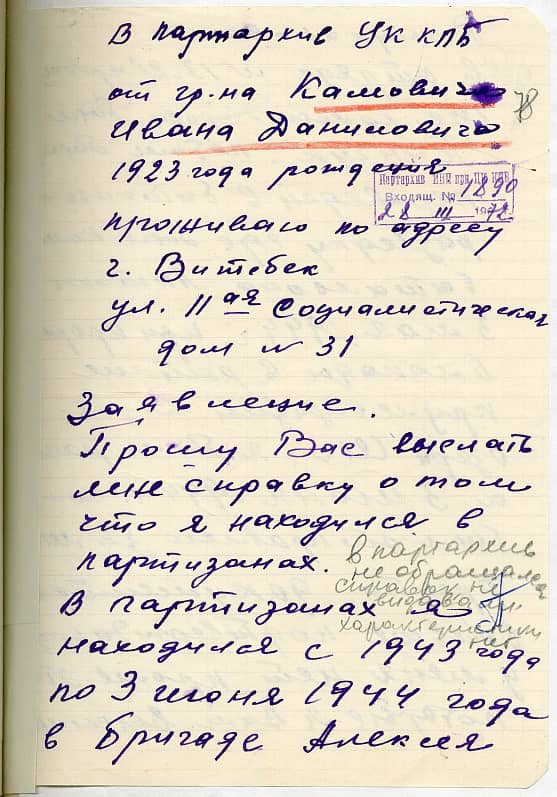 В партархив ЦК КПБ
от гр-на Камович
78
Ивана Даниловича
1923 года рождения
Партархив ИПИ при ЦК КПБ
Входящ. № 1890
28 III 1978
проживаю по адресу
г. Витебск
ул. II ая Социалистическая
дом № 31
Заявление.
Прошу Вас выслать
мне справку о том
что я находился в
партизанах.
в партархив
не обращался
справок не
выдавали
характеристики
нет
В партизанах я
находился с 1943 года
по 3 июня 1944 года
в бригаде Алексея